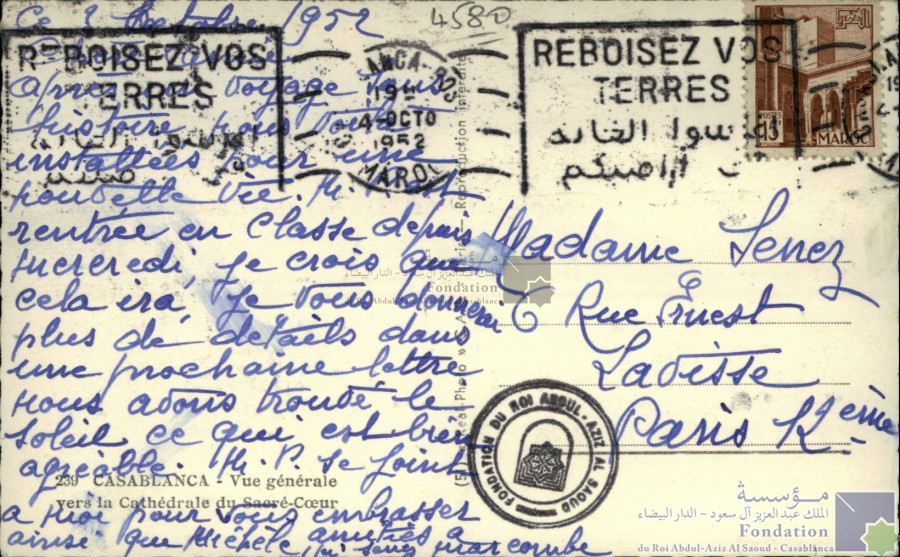 Ce 3 Octobre 1952
4580
REBOISEZ VOS
TERRES
REBOISEZ VOS
TERRES
اغرسوا الغابة
4-OCTO
1952
MAROC
POSTES
15
MAROC
après voyage sans
histoire nous voilà
installées pour une
nouvelle vie. M. P. est
rentrée en classe depuis
mercredi, je crois que
cela ira, je vous donnerai
plus de détails dans
une prochaine lettre
nous avons trouvé le
soleil ce qui est bien
agréable. M. P. se joint
à moi pour vous embrasser
ainsi que Michèle amitiés à
Madame Senez
6 Rue Ernest
Lavisse
Paris 12ème
239 CASABLANCA - Vue générale
vers la Cathédrale du Sacré-Cœur
Reproduction interdite
FONDATION DU ROI ABDUL-AZIZ AL SAOUD
الملك عبدالعزيز آل سعود - الدار البيضاء
Fondation
du Roi Abdul-Aziz Al Saoud - Casablanca
مؤسسة
الملك عبدالعزيز آل سعود - الدار البيضاء
Fondation
du Roi Abdul-Aziz Al Saoud - Casablanca